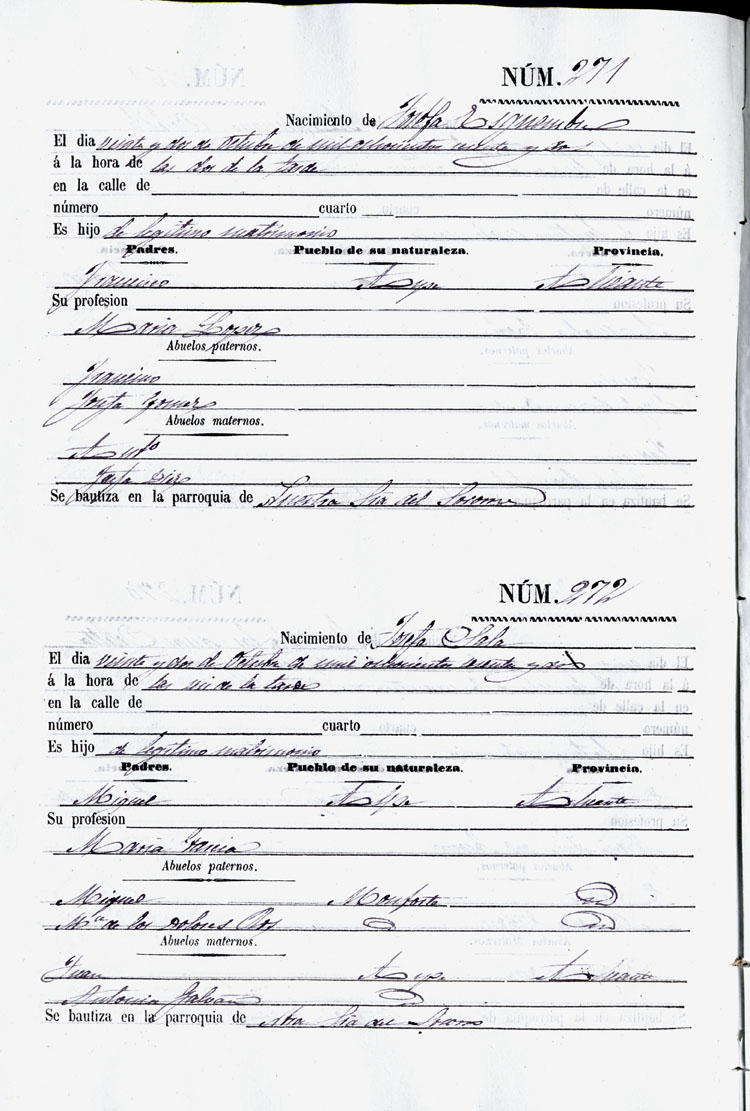 NÚM. 271
Nacimiento de Josefa Esquembre
El dia veinte y dos de Octubre de mil ochocientos sesenta y dos
á la hora de las dos de la tarde
en la calle de
número cuarto
Es hijo de legitimo matrimonio
Padres. Pueblo de su naturaleza. Provincia.
Francisco Aspe Alicante
Su profesion
Maria Lopez
Abuelos paternos.
Francisco
Josefa Gomez
Abuelos maternos.
Ant.º
Josefa
Se bautiza en la parroquia de Nuestra Sra del Socorro
NÚM. 272
Nacimiento de Josefa Sala
El dia veinte y dos de Octubre de mil ochocientos sesenta y dos
á la hora de las seis de la tarde
en la calle de
número cuarto
Es hijo de legitimo matrimonio
Padres. Pueblo de su naturaleza. Provincia.
Miguel Aspe Alicante
Su profesion
Maria Garcia
Abuelos paternos.
Miguel Monforte Id
M.ª de los Dolores Id Id
Abuelos maternos.
Juan Aspe Alicante
Antonia Galvañ Id
Se bautiza en la parroquia de Ntra Sra del Socorro